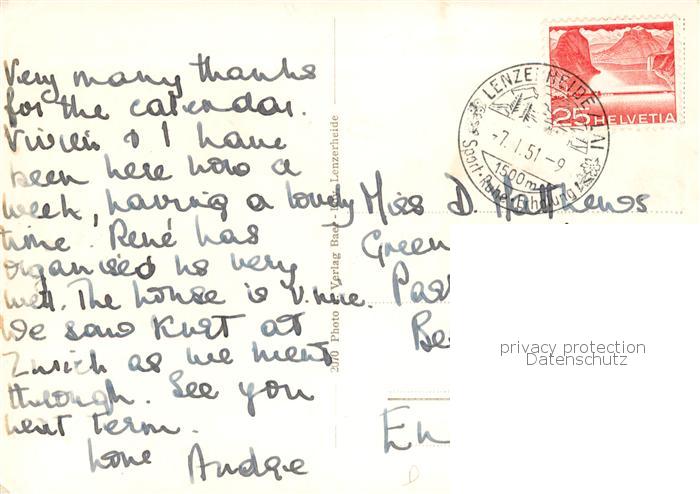 Very many thanks
for the calendar.
Vivien & I have
been here now a
week, having a lovely
time. René has
organised us very
well. The house is v. nice.
We saw Kurt at
Zurich as we went
through. See you
next term.
Love Andrée
2010 Photo Verlag Baer Lenzerheide
25 HELVETIA
LENZERHEIDE
-7.I.51-9
1500m
Sport-Ruhe-Erholung
Miss D. Matthews
Green
En
privacy protection
Datenschutz